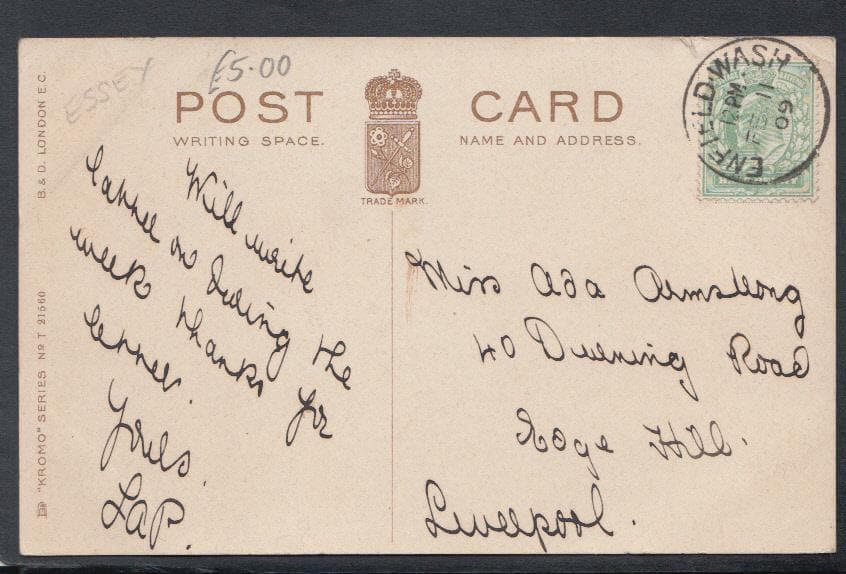 £5.00
ESSEX
POST CARD
WRITING SPACE.
NAME AND ADDRESS.
TRADE MARK.
B. & D. LONDON E.C.
"KROMO" SERIES No T 21560
ENFIELD.WASH
PM
11
09
Will write
latter on During the
week thanks for
letter.
Yours.
LAP.
Miss Ada Armstrong
40 Durning Road
Edge Hill.
Liverpool.